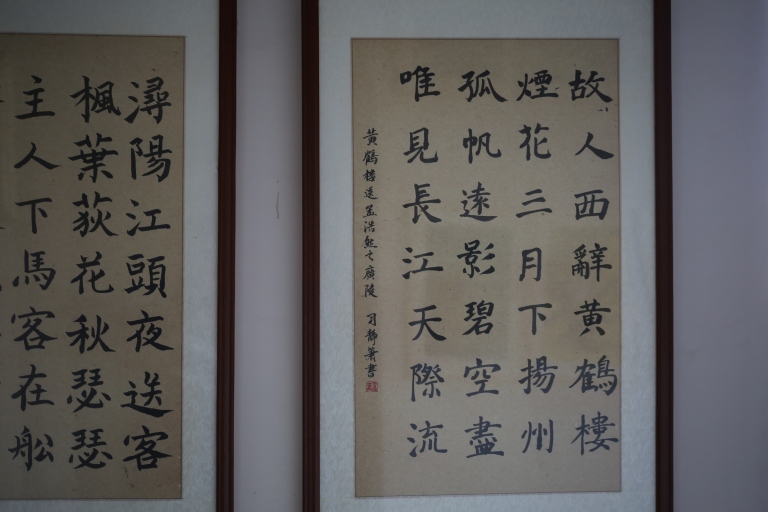 故人西辭黄鶴樓
煙花三月下揚州
孤帆遠影碧空盡
唯見長江天際流
黄鶴樓送孟浩然之廣陵
潯陽江頭夜送客
楓葉荻花秋瑟瑟
主人下馬客在船